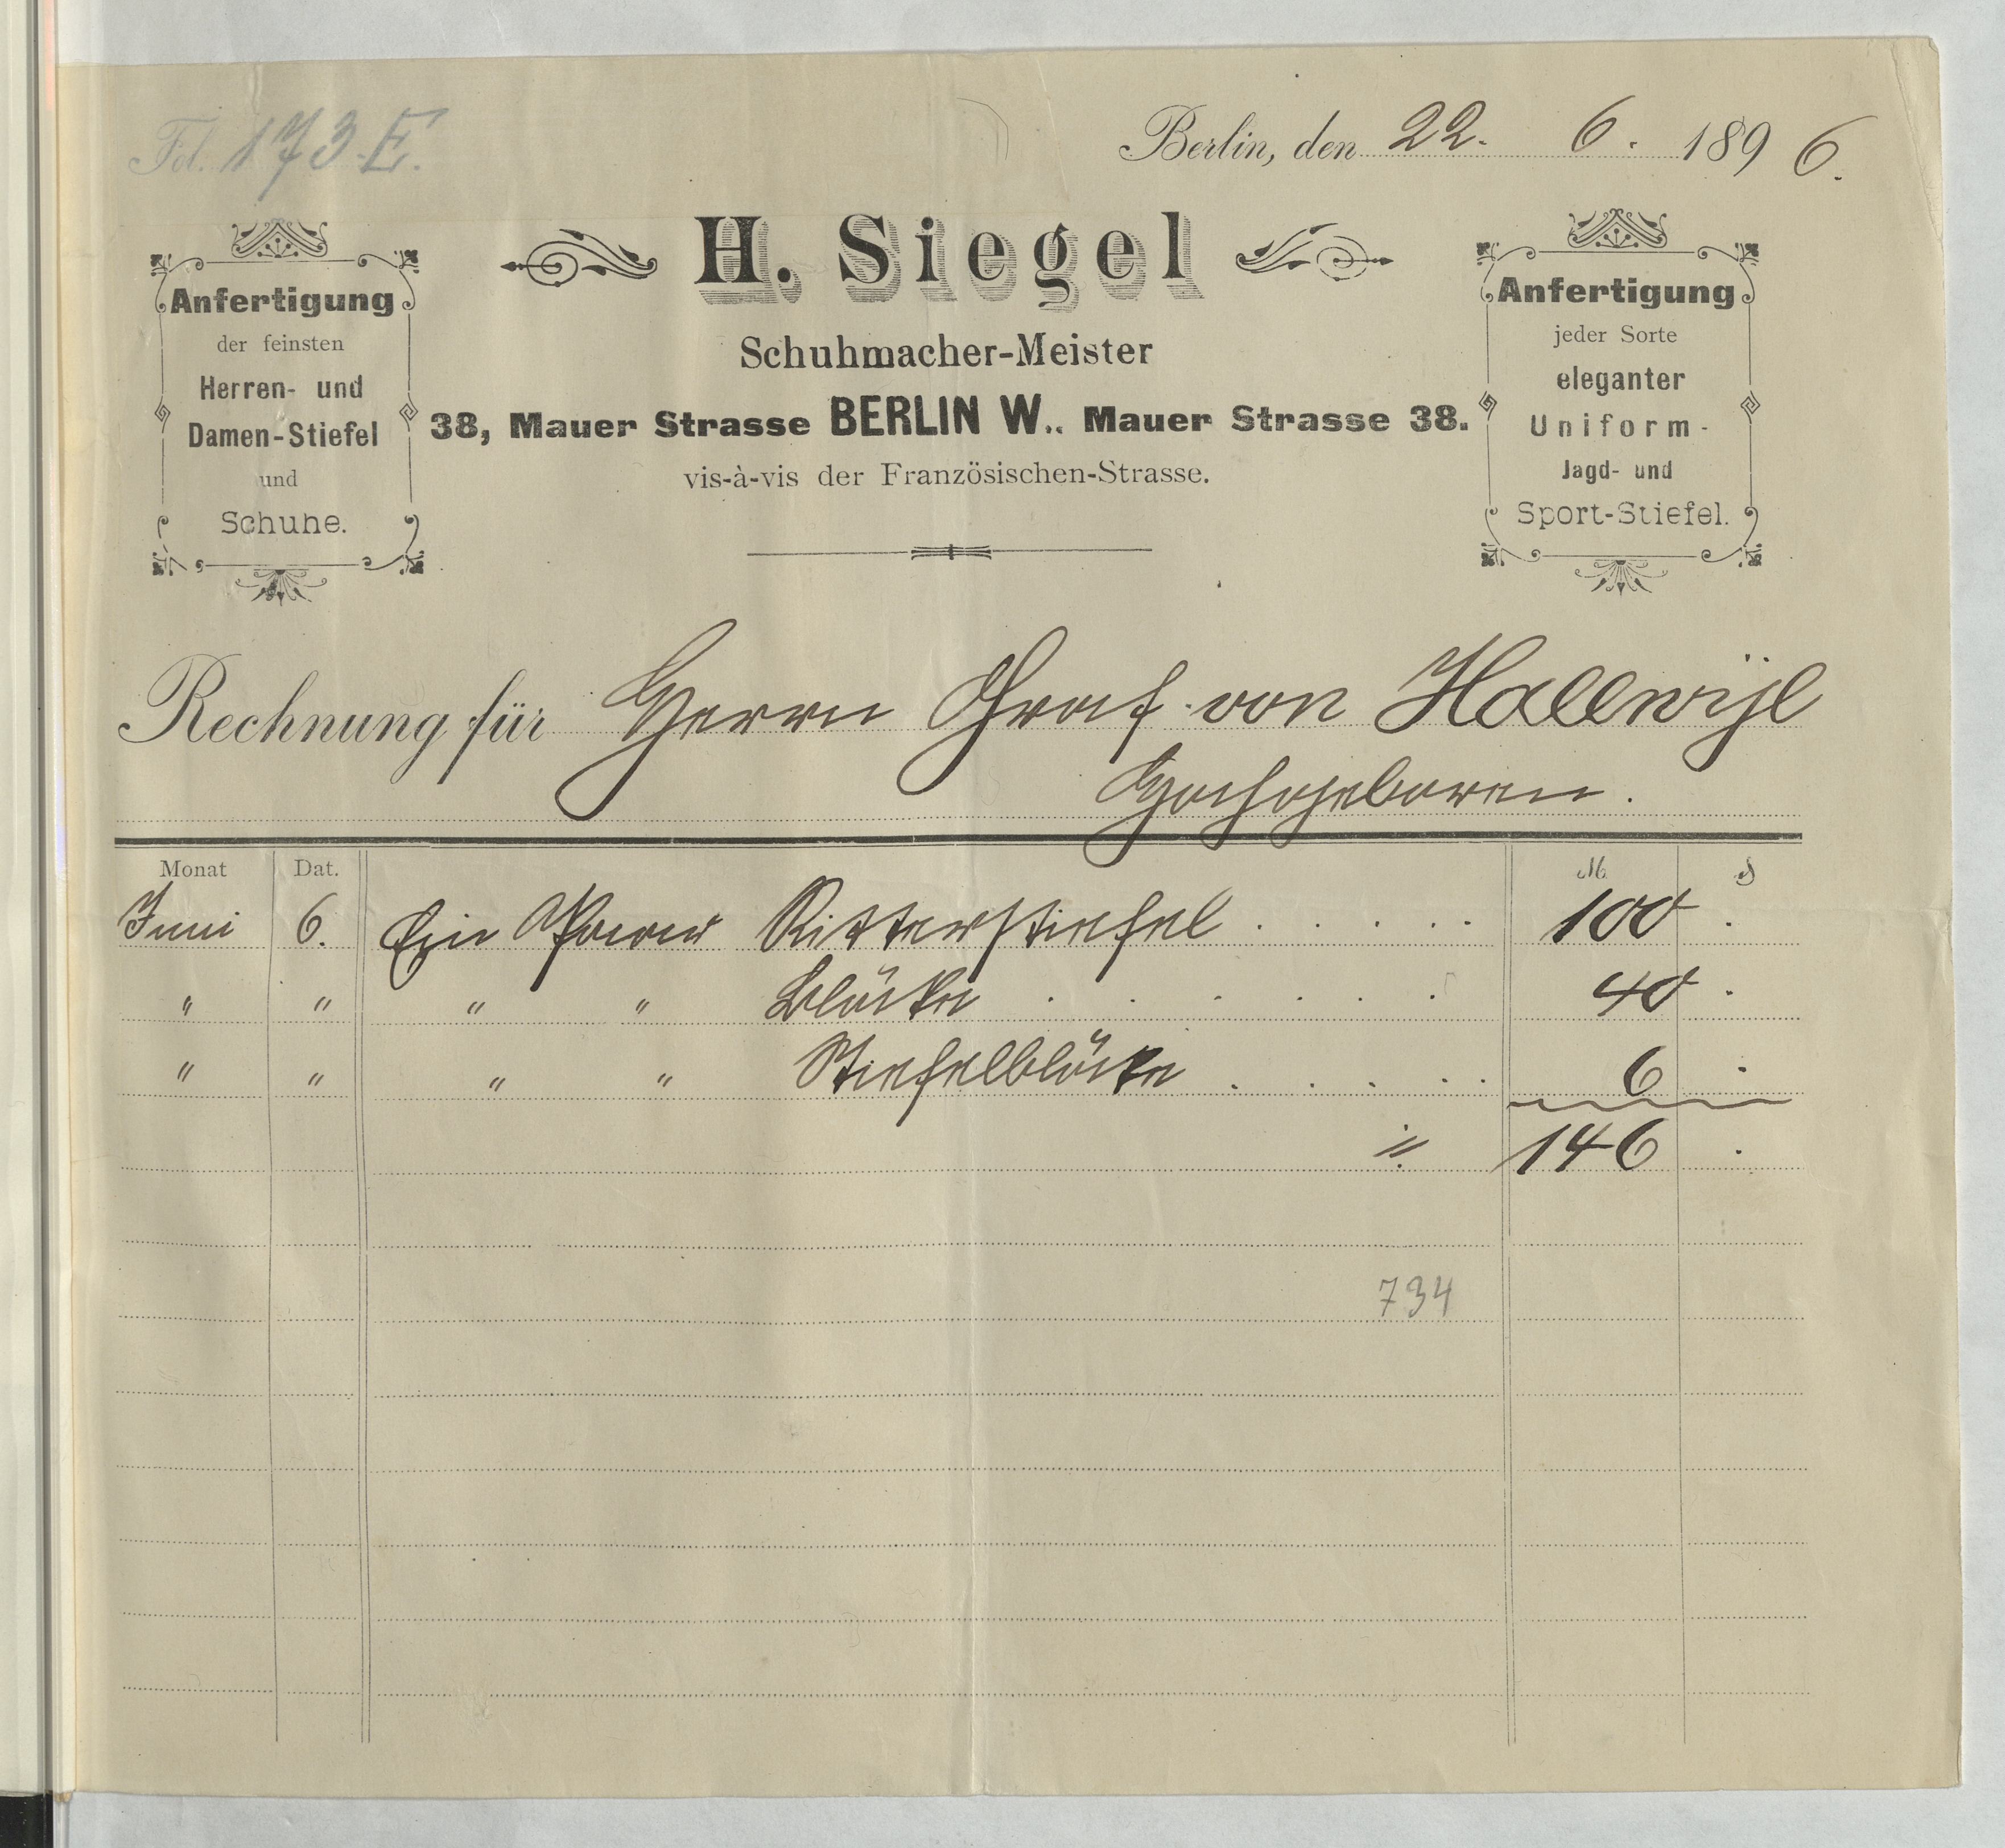 Fol. 173.E.
Berlin, den 22. 6. 1896.
H. Siegel
Schuhmacher-Meister
38, Mauer Strasse BERLIN W., Mauer Strasse 38.
vis-à-vis der Französischen-Strasse.
Anfertigung
der feinsten
Herren- und
Damen-Stiefel
und
Schuhe.
Anfertigung
jeder Sorte
eleganter
Uniform-
Jagd- und
Sport-Stiefel.
Rechnung für Herrn Graf von Hallwijl
Hochgeboren.
Monat Dat. M. ₰
Juni 6. Ein Paar Ritterstiefel . . . . . 100 .
" " " " Blöcke . . . . . . 40 .
" " " " Stiefelblöcke . . . . . 6 .
146 .
734